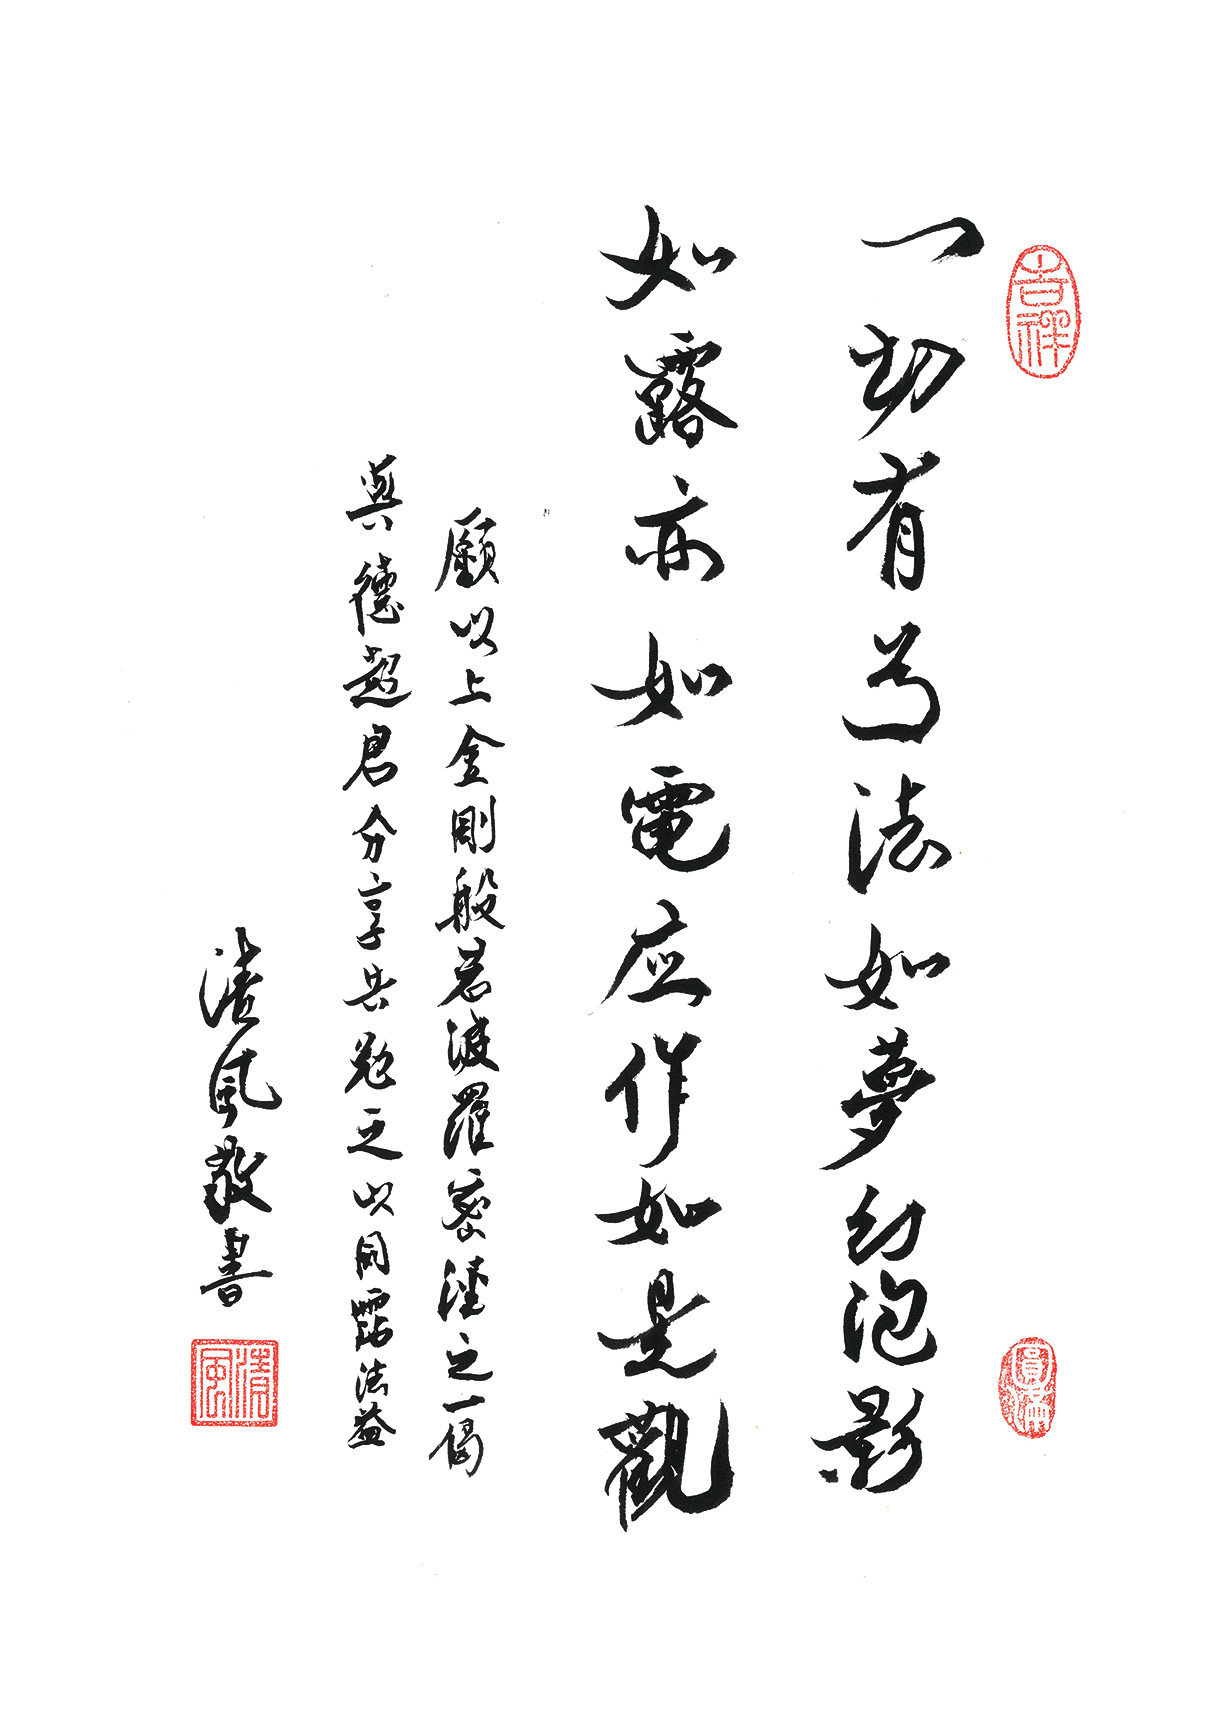 吉祥
一切有為法如夢幻泡影
圓滿
如露亦如電应作如是觀
願以上金剛般若波羅蜜經之一偈
與德超君分享共勉之以同霑法益
淩風敬書
淩風